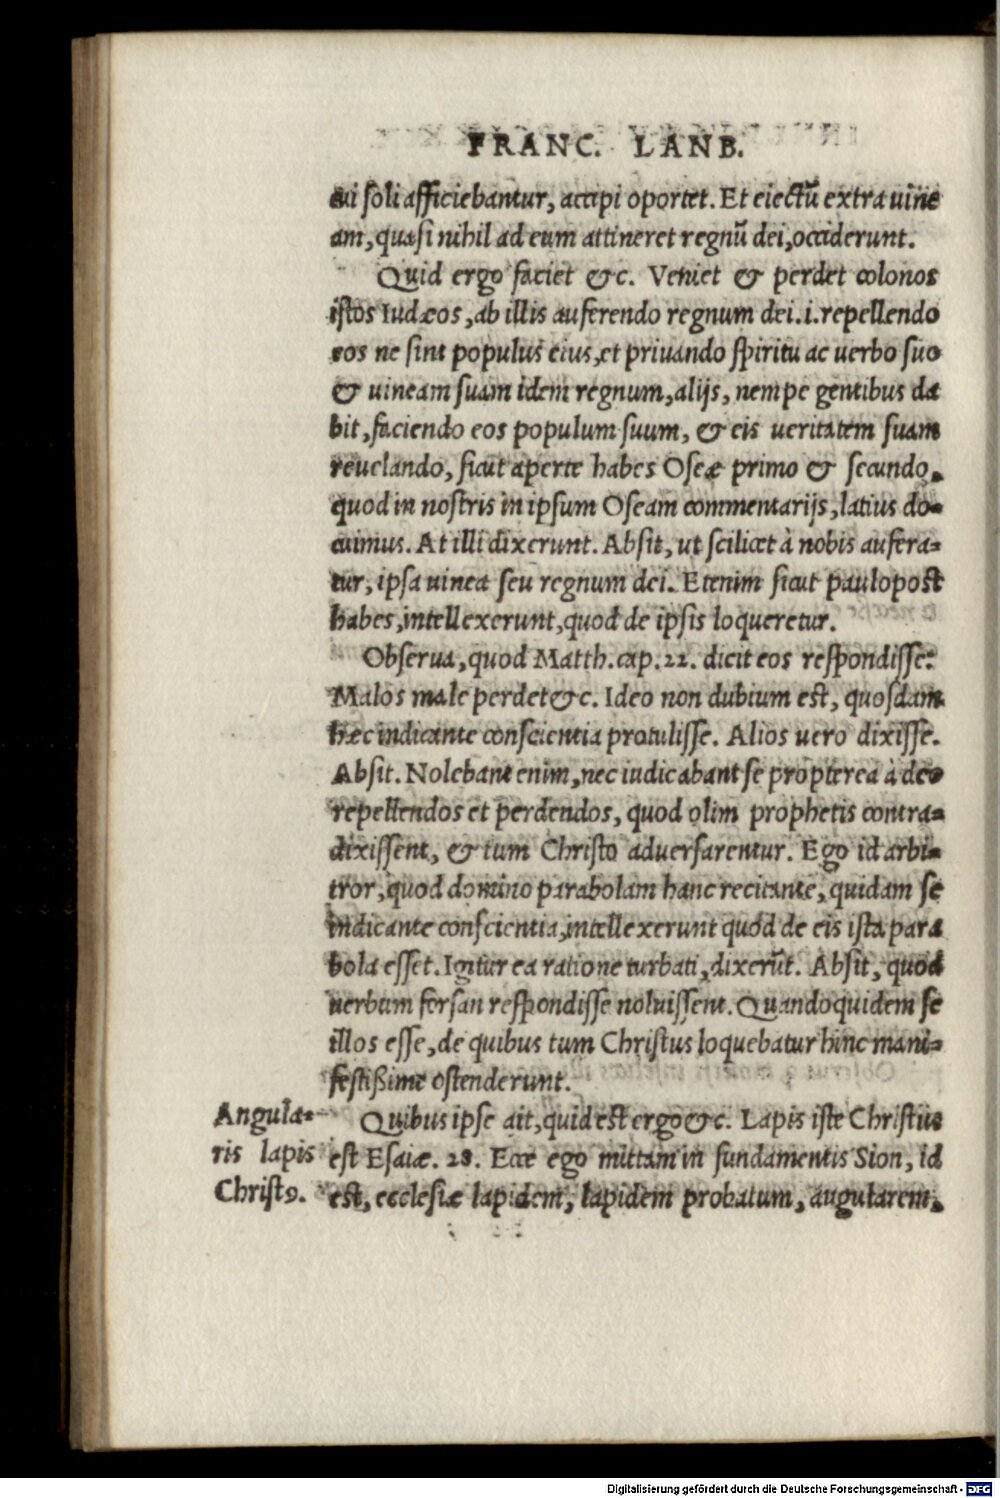 FRANC. LANB.
cui soli afficiebantur, accipi oportet. Et eiectũ extra uine
am, quasi nihil ad eum attineret regnũ dei, occiderunt.
Quid ergo faciet &c. Veniet & perdet colonos
istos Iudæos, ab illis auferendo regnum dei .i. repellendo
eos ne sint populus eius, et priuando spiritu ac uerbo suo
& uineam suam idem regnum, alijs, nempe gentibus da
bit, faciendo eos populum suum, & eis ueritatem suam
reuelando, sicut aperte habes Oseæ primo & secundo,
quod in nostris in ipsum Oseam commentarijs, latius do-
cuimus. At illi dixerunt. Absit, ut scilicet à nobis aufera-
tur, ipsa uinea seu regnum dei. Etenim sicut paulopost
habes, intellexerunt, quod de ipsis loqueretur.
Obserua, quod Matth. cap. 21. dicit eos respondisse:
Malos male perdet &c. Ideo non dubium est, quosdam
hæc indicante conscientia protulisse. Alios uero dixisse.
Absit. Nolebant enim, nec iudicabant se propterea à deo
repellendos et perdendos, quod olim prophetis contra-
dixissent, & tum Christo aduersarentur. Ego id arbi-
tror, quod domino parabolam hanc recitante, quidam se
indicante conscientia, intellexerunt quod de eis ista para
bola esset. Igitur ea ratione turbati, dixerũt. Absit, quod
uerbum forsan respondisse noluissent. Quandoquidem se
illos esse, de quibus tum Christus loquebatur hinc mani-
festißime ostenderunt.
Angula-
ris lapis
Christ9.
Quibus ipse ait, quid est ergo &c. Lapis iste Christus
est Esaiæ. 28. Ecce ego mittam in fundamentis Sion, id
est, ecclesiæ lapidem, lapidem probatum, angularem,
Digitalisierung gefördert durch die Deutsche Forschungsgemeinschaft - DFG